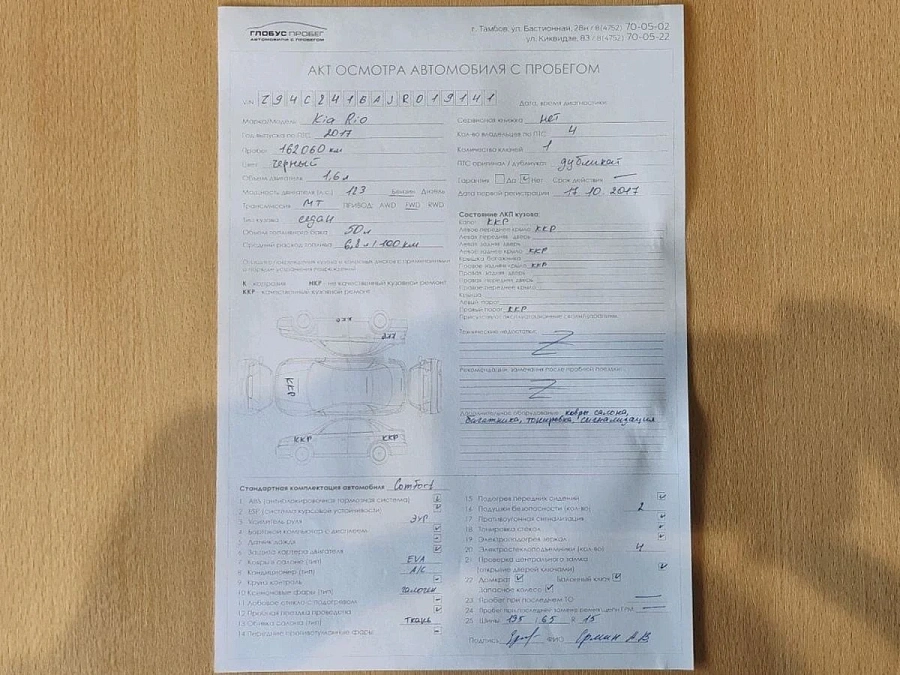 ГЛОБУС ПРОБЕГ
АВТОМОБИЛИ С ПРОБЕГОМ
г. Тамбов, ул. Бастионная, 28н / 8(4752) 70-05-02
ул. Киквидзе, 83 / 8(4752) 70-05-22
АКТ ОСМОТРА АВТОМОБИЛЯ С ПРОБЕГОМ
VIN Z94C241BAJR019141
Дата, время диагностики
Марка/Модель Kia Rio
Сервисная книжка нет
Год выпуска по ПТС 2017
Кол-во владельцев по ПТС 4
Пробег 162060 км
Количество ключей 1
Цвет черный
ПТС оригинал / дубликат дубликат
Объем двигателя 1,6 л
Гарантия Да Нет Срок действия —
Мощность двигателя (л.с.) 123 Бензин Дизель
Дата первой регистрации 17.10.2017
Трансмиссия МТ ПРИВОД: AWD FWD RWD
Тип кузова седан
Объем топливного бака 50 л
Средний расход топлива 6,8 л / 100 км
Состояние ЛКП кузова:
Капот ККР
Левое переднее крыло ККР
Левая передняя дверь
Левая задняя дверь
Левое заднее крыло ККР
Крышка багажника
Правое заднее крыло ККР
Правая задняя дверь
Правая передняя дверь
Правое переднее крыло
Крыша
Левый порог
Правый порог ККР
К - коррозия НКР - не качественный кузовной ремонт
ККР - качественный кузовной ремонт
ККР
ККР
ККР
ККР ККР
Технические недостатки:
Z
Рекомендации, замечания после пробной поездки:
Z
Дополнительное оборудование: ковры салона,
багажника, тонировка, сигнализация
Стандартная комплектация автомобиля Comfort
1 ABS (антиблокировочная тормозная система)
2 ESP (система курсовой устойчивости)
3 Усилитель руля ЭУР
4 Бортовой компьютер с дисплеем
5 Датчик дождя
6 Защита картера двигателя
7 Ковры в салоне (тип) EVA
8 Кондиционер (тип) A/C
9 Круиз контроль
10 Ксеноновые фары (тип) галоген
11 Лобовое стекло с подогревом
12 Пробная поездка проведена
13 Обивка салона (тип) ткань
14 Передние противотуманные фары
15 Подогрев передних сидений
16 Подушки безопасности (кол-во) 2
17 Противоугонная сигнализация
18 Тонировка стекол
19 Электроподогрев зеркал
20 Электростеклоподъемники (кол-во) 4
21 Проверка центрального замка
(открытие дверей ключами)
22 Домкрат Балонный ключ
Запасное колесо
23 Пробег при последнем ТО —
24 Пробег при последней замене ремня/цепи ГРМ —
25 Шины 195 / 65 R 15
Подпись ФИО